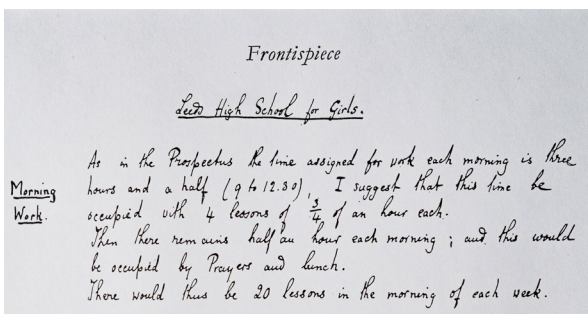 Frontispiece
Leeds High School for Girls.
As in the Prospectus the time assigned for work each morning is three
Morning hours and a half (9 to 12.30), I suggest that this time be
Work. occupied with 4 lessons of 3/4 of an hour each.
Then there remains half an hour each morning; and this would
be occupied by Prayers and lunch.
There would thus be 20 lessons in the morning of each week.